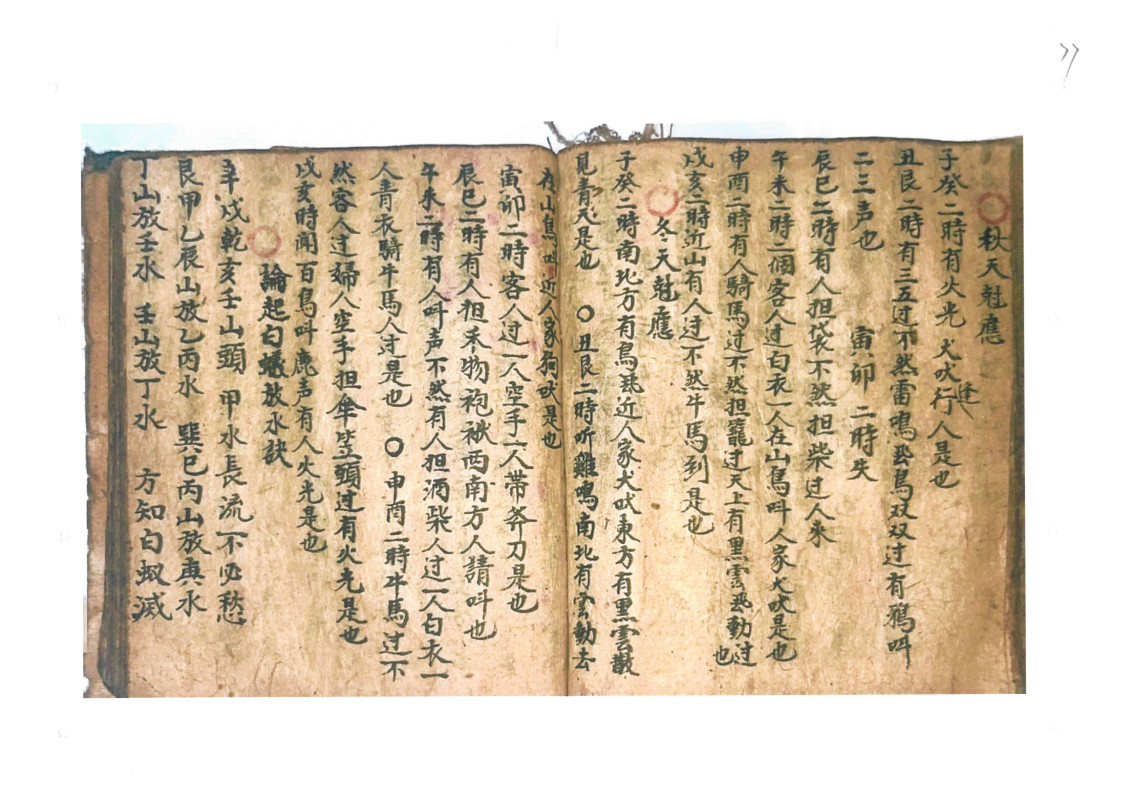 秋天尅應
子癸二時有火光犬吠行人是也
逢
丑艮二時有三五过不然雷鳴飛鳥双双过有鴉呌
二三声也 寅卯二時失
辰巳二時有人担袋不然担柴过人来
午未二時二個客人过白衣一人在山鳥呌人家犬吠是也
申酉二時有人騎馬过不然担籠过天上有黑雲飛動过也
戌亥二時近山有人过不然牛馬到是也
冬天尅應
子癸二時南北方有鳥飛近人家犬吠東方有黑雲散
見青天是也 〇丑艮二時听雞鳴南北有雲動去
在山鳥呌近人家狗吠是也
寅卯二時客人过一人空手一人帶斧刀是也
辰巳二時有人担禾物袍袱西南方人請呌也
午未二時有人呌声不然有人担酒柴人过一人白衣一
人青衣騎牛馬人过是也 〇申酉二時牛馬过不
然客人过婦人空手担傘笠頭过有火光是也
戌亥時聞百鳥呌鹿声有人火光是也
論起白蟻放水訣
辛戌乾亥壬山頭 甲水長流不必愁
艮甲乙辰山放乙丙水 巽巳丙山放庚水
丁山放壬水 壬山放丁水 方知白蚁滅